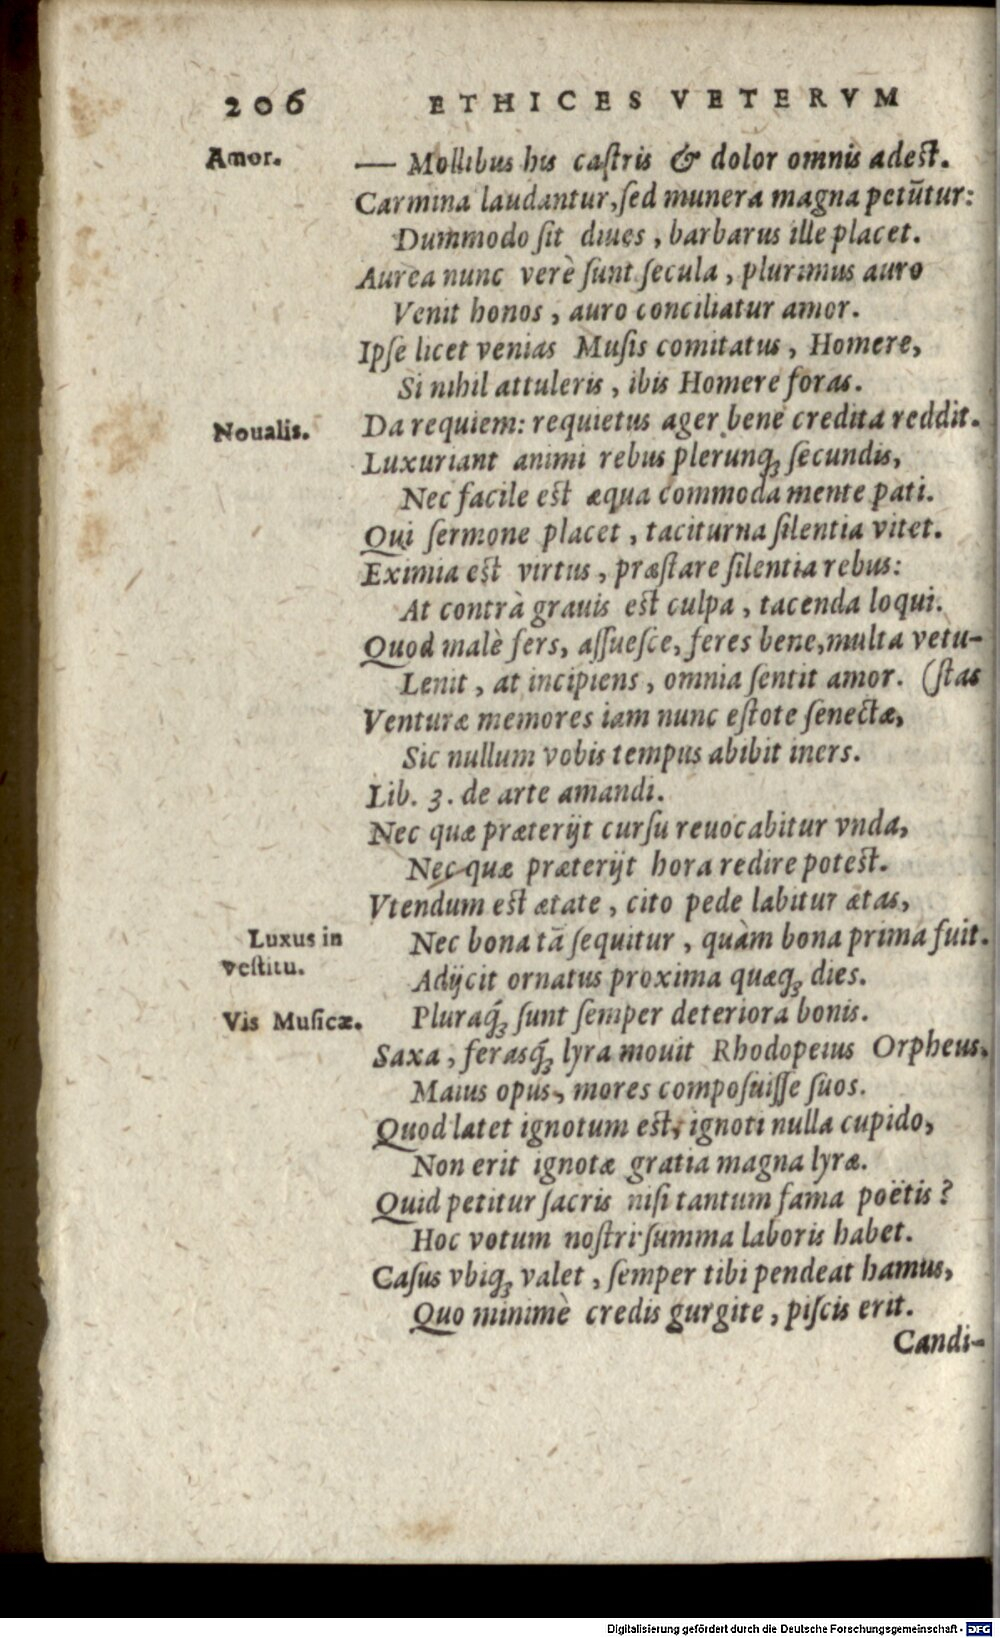 206 ETHICES VETERVM
Amor.
— Mollibus his caſtris & dolor omnis adeſt.
Carmina laudantur, ſed munera magna petūtur:
Dummodo ſit diues, barbarus ille placet.
Aurea nunc verè ſunt ſecula, plurimus auro
Venit honos, auro conciliatur amor.
Ipſe licet venias Muſis comitatus, Homere,
Si nihil attuleris, ibis Homere foras.
Noualis.
Da requiem: requietus ager bene credita reddit.
Luxuriant animi rebus plerunq́ꝫ ſecundis,
Nec facile eſt æqua commoda mente pati.
Qui ſermone placet, taciturna ſilentia vitet.
Eximia eſt virtus, præſtare ſilentia rebus:
At contrà grauis eſt culpa, tacenda loqui.
Quod malè fers, aſſueſce, feres bene, multa vetu-
Lenit, at incipiens, omnia ſentit amor. (ſtas
Venturæ memores iam nunc eſtote ſenectæ,
Sic nullum vobis tempus abibit iners.
Lib. 3. de arte amandi.
Nec quæ præterijt curſu reuocabitur vnda,
Nec quæ præterijt hora redire poteſt.
Vtendum eſt ætate, cito pede labitur ætas,
Nec bona tā ſequitur, quàm bona prima fuit.
Luxus in
veſtitu.
Adijcit ornatus proxima quæqꝫ dies.
Vis Muſicæ.
Pluraq́ꝫ ſunt ſemper deteriora bonis.
Saxa, feraſq́ꝫ lyra mouit Rhodopeius Orpheus,
Maius opus, mores compoſuiſſe ſuos.
Quod latet ignotum eſt, ignoti nulla cupido,
Non erit ignotæ gratia magna lyræ.
Quid petitur ſacris niſi tantum fama poëtis?
Hoc votum noſtri ſumma laboris habet.
Caſus vbiqꝫ valet, ſemper tibi pendeat hamus,
Quo minimè credis gurgite, piſcis erit.
Candi-
Digitalisierung gefördert durch die Deutsche Forschungsgemeinschaft - DFG